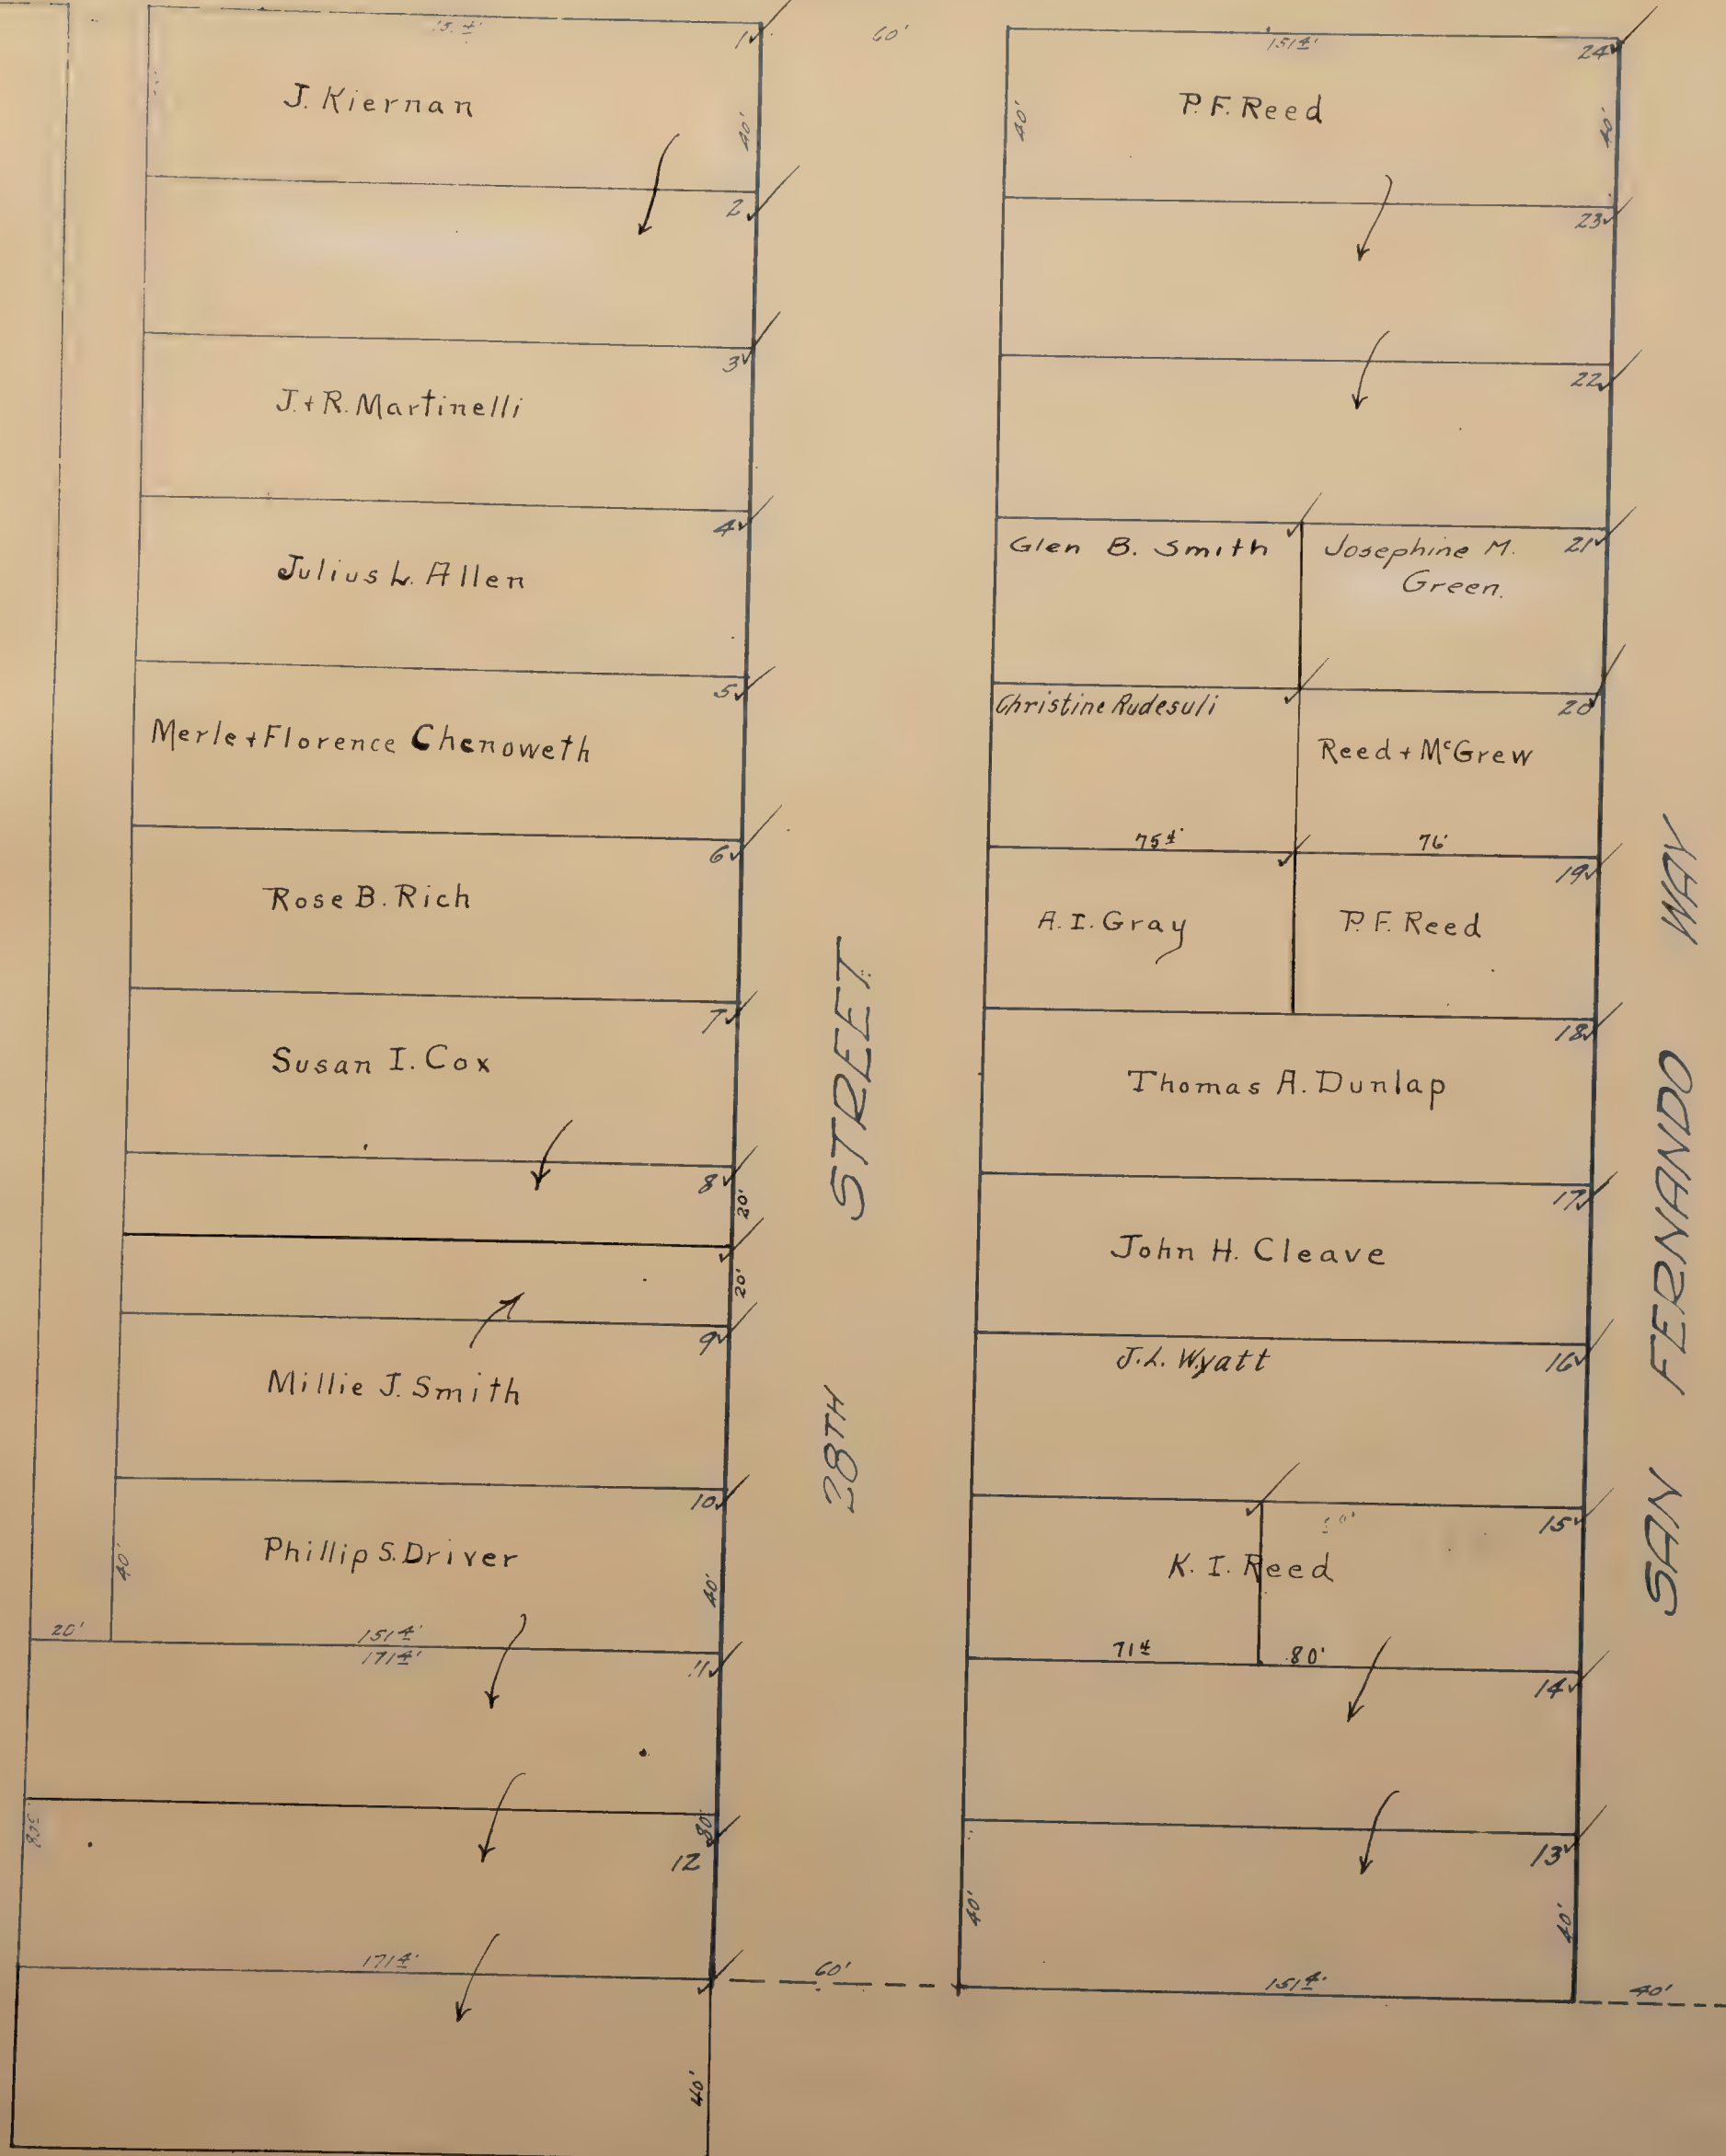 151 4'
1
J. Kiernan
40'
2
3
J. + R. Martinelli
4
Julius L. Allen
5
Merle + Florence Chenoweth
6
Rose B. Rich
7
Susan I. Cox
8
20'
20'
9
Millie J. Smith
10
Phillip S. Driver
40'
40'
20'
151 4'
171 4'
11
80'
12
171 4'
40'
60'
28TH STREET
60'
151 4'
24
40'
P. F. Reed
40'
23
22
21
Glen B. Smith
Josephine M.
Green.
20
Christine Rudesuli
Reed + McGrew
75 4'
76'
19
A. I. Gray
P. F. Reed
18
Thomas A. Dunlap
17
John H. Cleave
16
J. L. Wyatt
15
K. I. Reed
71 4
80'
14
13
40'
40'
151 4'
40'
SAN FERNANDO WAY